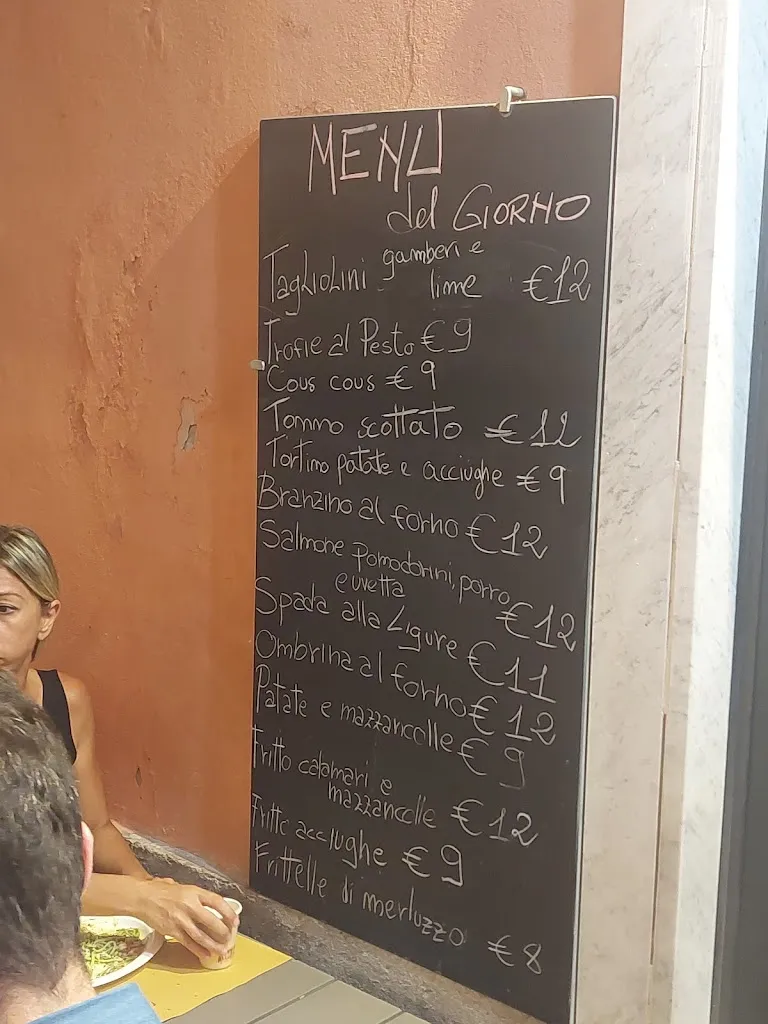 MENU
del GIORNO
TAGLIOLINI gamberi e
lime €12
Trofie al Pesto € 9
Cous cous € 9
Tonno scottato € 12
Tortino patate e acciughe € 9
Branzino al forno € 12
Salmone Pomodorini, porro
e uvetta €12
Spada alla Ligure €11
Ombrina al forno € 12
Patate e mazzancolle € 9
Fritto calamari e
mazzancolle € 12
Fritto acciughe € 9
Frittelle di merluzzo € 8